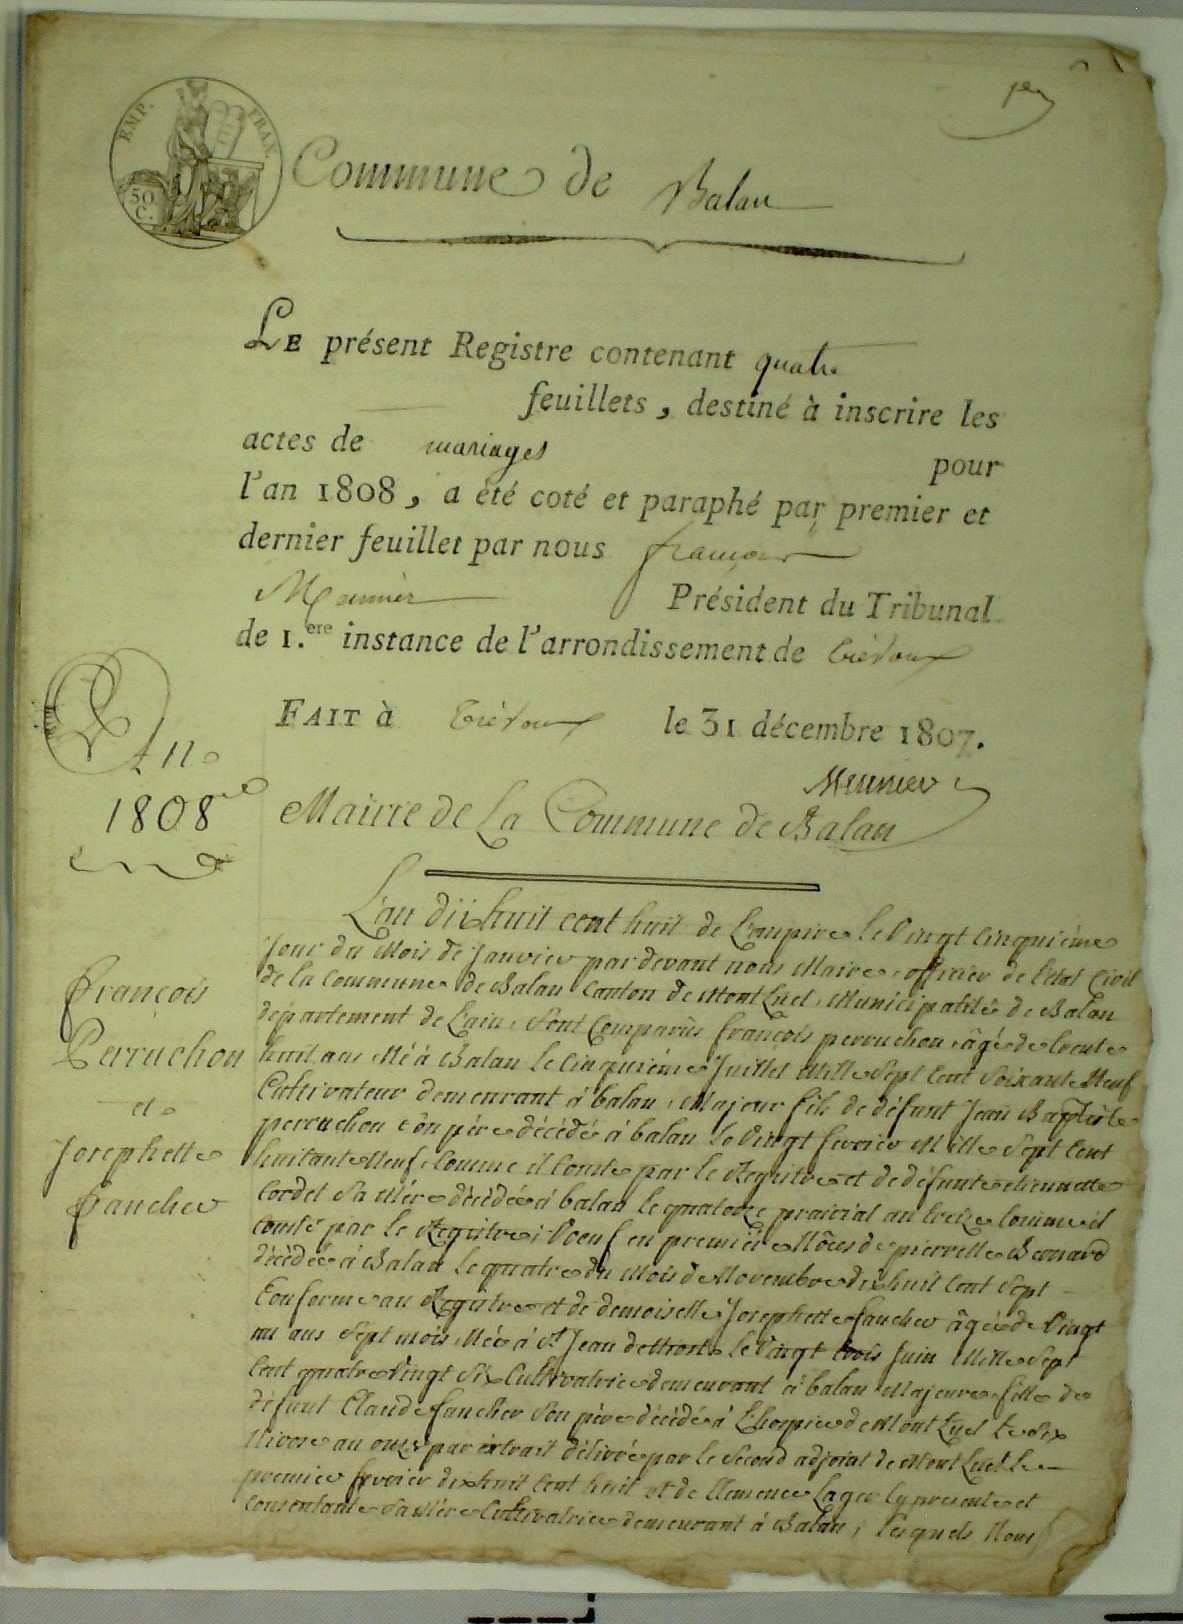 1er
EMP. FRAN.
50 C.
Commune de Balan
LE présent Registre contenant quatre
feuillets, destiné à inscrire les
actes de mariages pour
l'an 1808, a été coté et paraphé par premier et
dernier feuillet par nous françois
Meunier Président du Tribunal
de 1.ere instance de l'arrondissement de trévoux
FAIT à trévoux le 31 décembre 1807.
Meunier
An
1808
Mairie de La Commune de Balan
L'an dix huit cent huit de L'empire le Vingt Cinquième
Jour du Mois de Janvier par devant nous Maire, officier de l'etat Civil
de la Commune de Balan Canton de Mont Luel, Municipalité de Balan
département de L'ain, Sont Comparûs françois perruchon, âgé de trente
huit ans Né à Balan le Cinquième Juillet Mille Sept Cent Soixante Neuf
Cultivateur demeurant à balan, Majeur fils de défunt Jean Baptiste
perruchon Son père décédé à balan le Vingt fevrier Mille Sept Cent
huitante Neuf, Comme il Conste par le Registre et de défunte etiennette
Cordet Sa Mère décédée à balan le quatorze prairial an treize Comme il
Conste par le Registre; Voeuf en première Nôces de pierrette Bernard
décédée à Balan le quatre du Mois de Novembre dix huit Cent Sept
Conforme au Registre et de demoiselle Josephette fancher âgée de Vingt
un ans Sept mois Née à St Jean de Niost le Vingt trois Juin Mille Sept
Cent quatre Vingt Six Cultivatrice demeurant à balan Majeure fille de
défunt Claude fancher Son père décédé à L'hospice de Mont Luel le Six
Nivose an onze par extrait délivré par le Second adjoint de Mont Luel le
premier fevrier dix huit Cent huit et de Clemence Lager Cy presente et
Consentante Sa Mère Cultivatrice demeurant à Balan; Lesquels Nous
François
Perruchon
et
Josephette
fancher